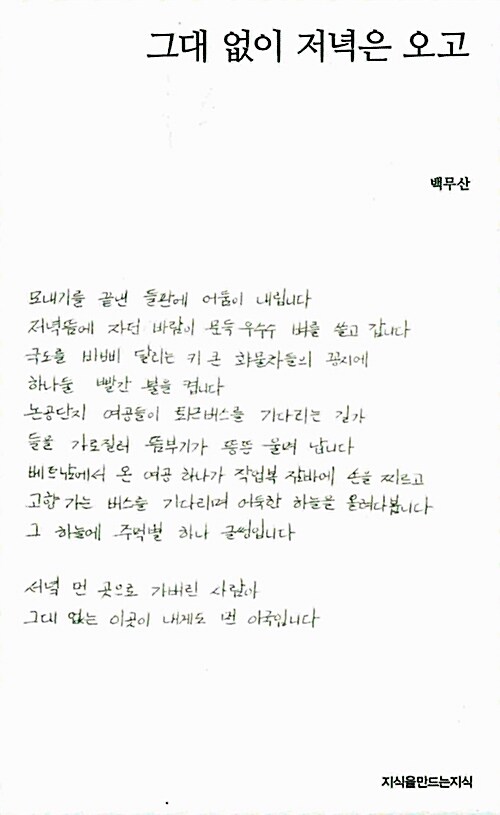 그대 없이 저녁은 오고
백무산
모내기를 끝낸 들판에 어둠이 내립니다
저녁뜸에 자던 바람이 문득 우수수 벼를 쓸고 갑니다
국도를 바삐 달리는 키 큰 화물차들의 꽁지에
하나둘 빨간 불을 켭니다
논공단지 여공들이 퇴근버스를 기다리는 길가
들을 가로질러 뜸부기가 뜸뜸 울며 납니다
베트남에서 온 여공 하나가 작업복 잠바에 손을 찌르고
고향 가는 버스를 기다리며 어둑한 하늘을 올려다봅니다
그 하늘에 주먹별 하나 글썽입니다
서녘 먼 곳으로 가버린 사람아
그대 없는 이곳이 내게도 먼 이국입니다
지식을만드는지식